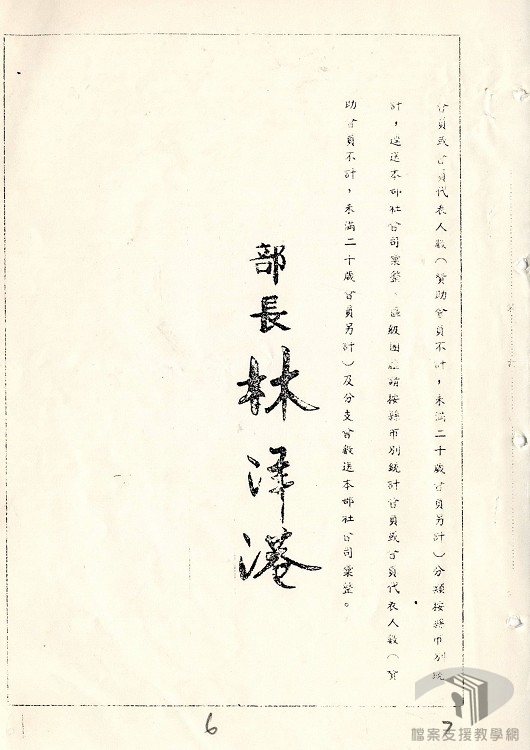 會員或會員代表人數（贊助會員不計，未滿二十歲會員另計）分類按縣市別統
計，逕送本部社會司彙整、區級團體請按縣市別統計會員或會員代表人數（贊
助會員不計，未滿二十歲會員另計）及分支會數送本部社會司彙整。
部長 林洋港
6
7
檔案支援教學網